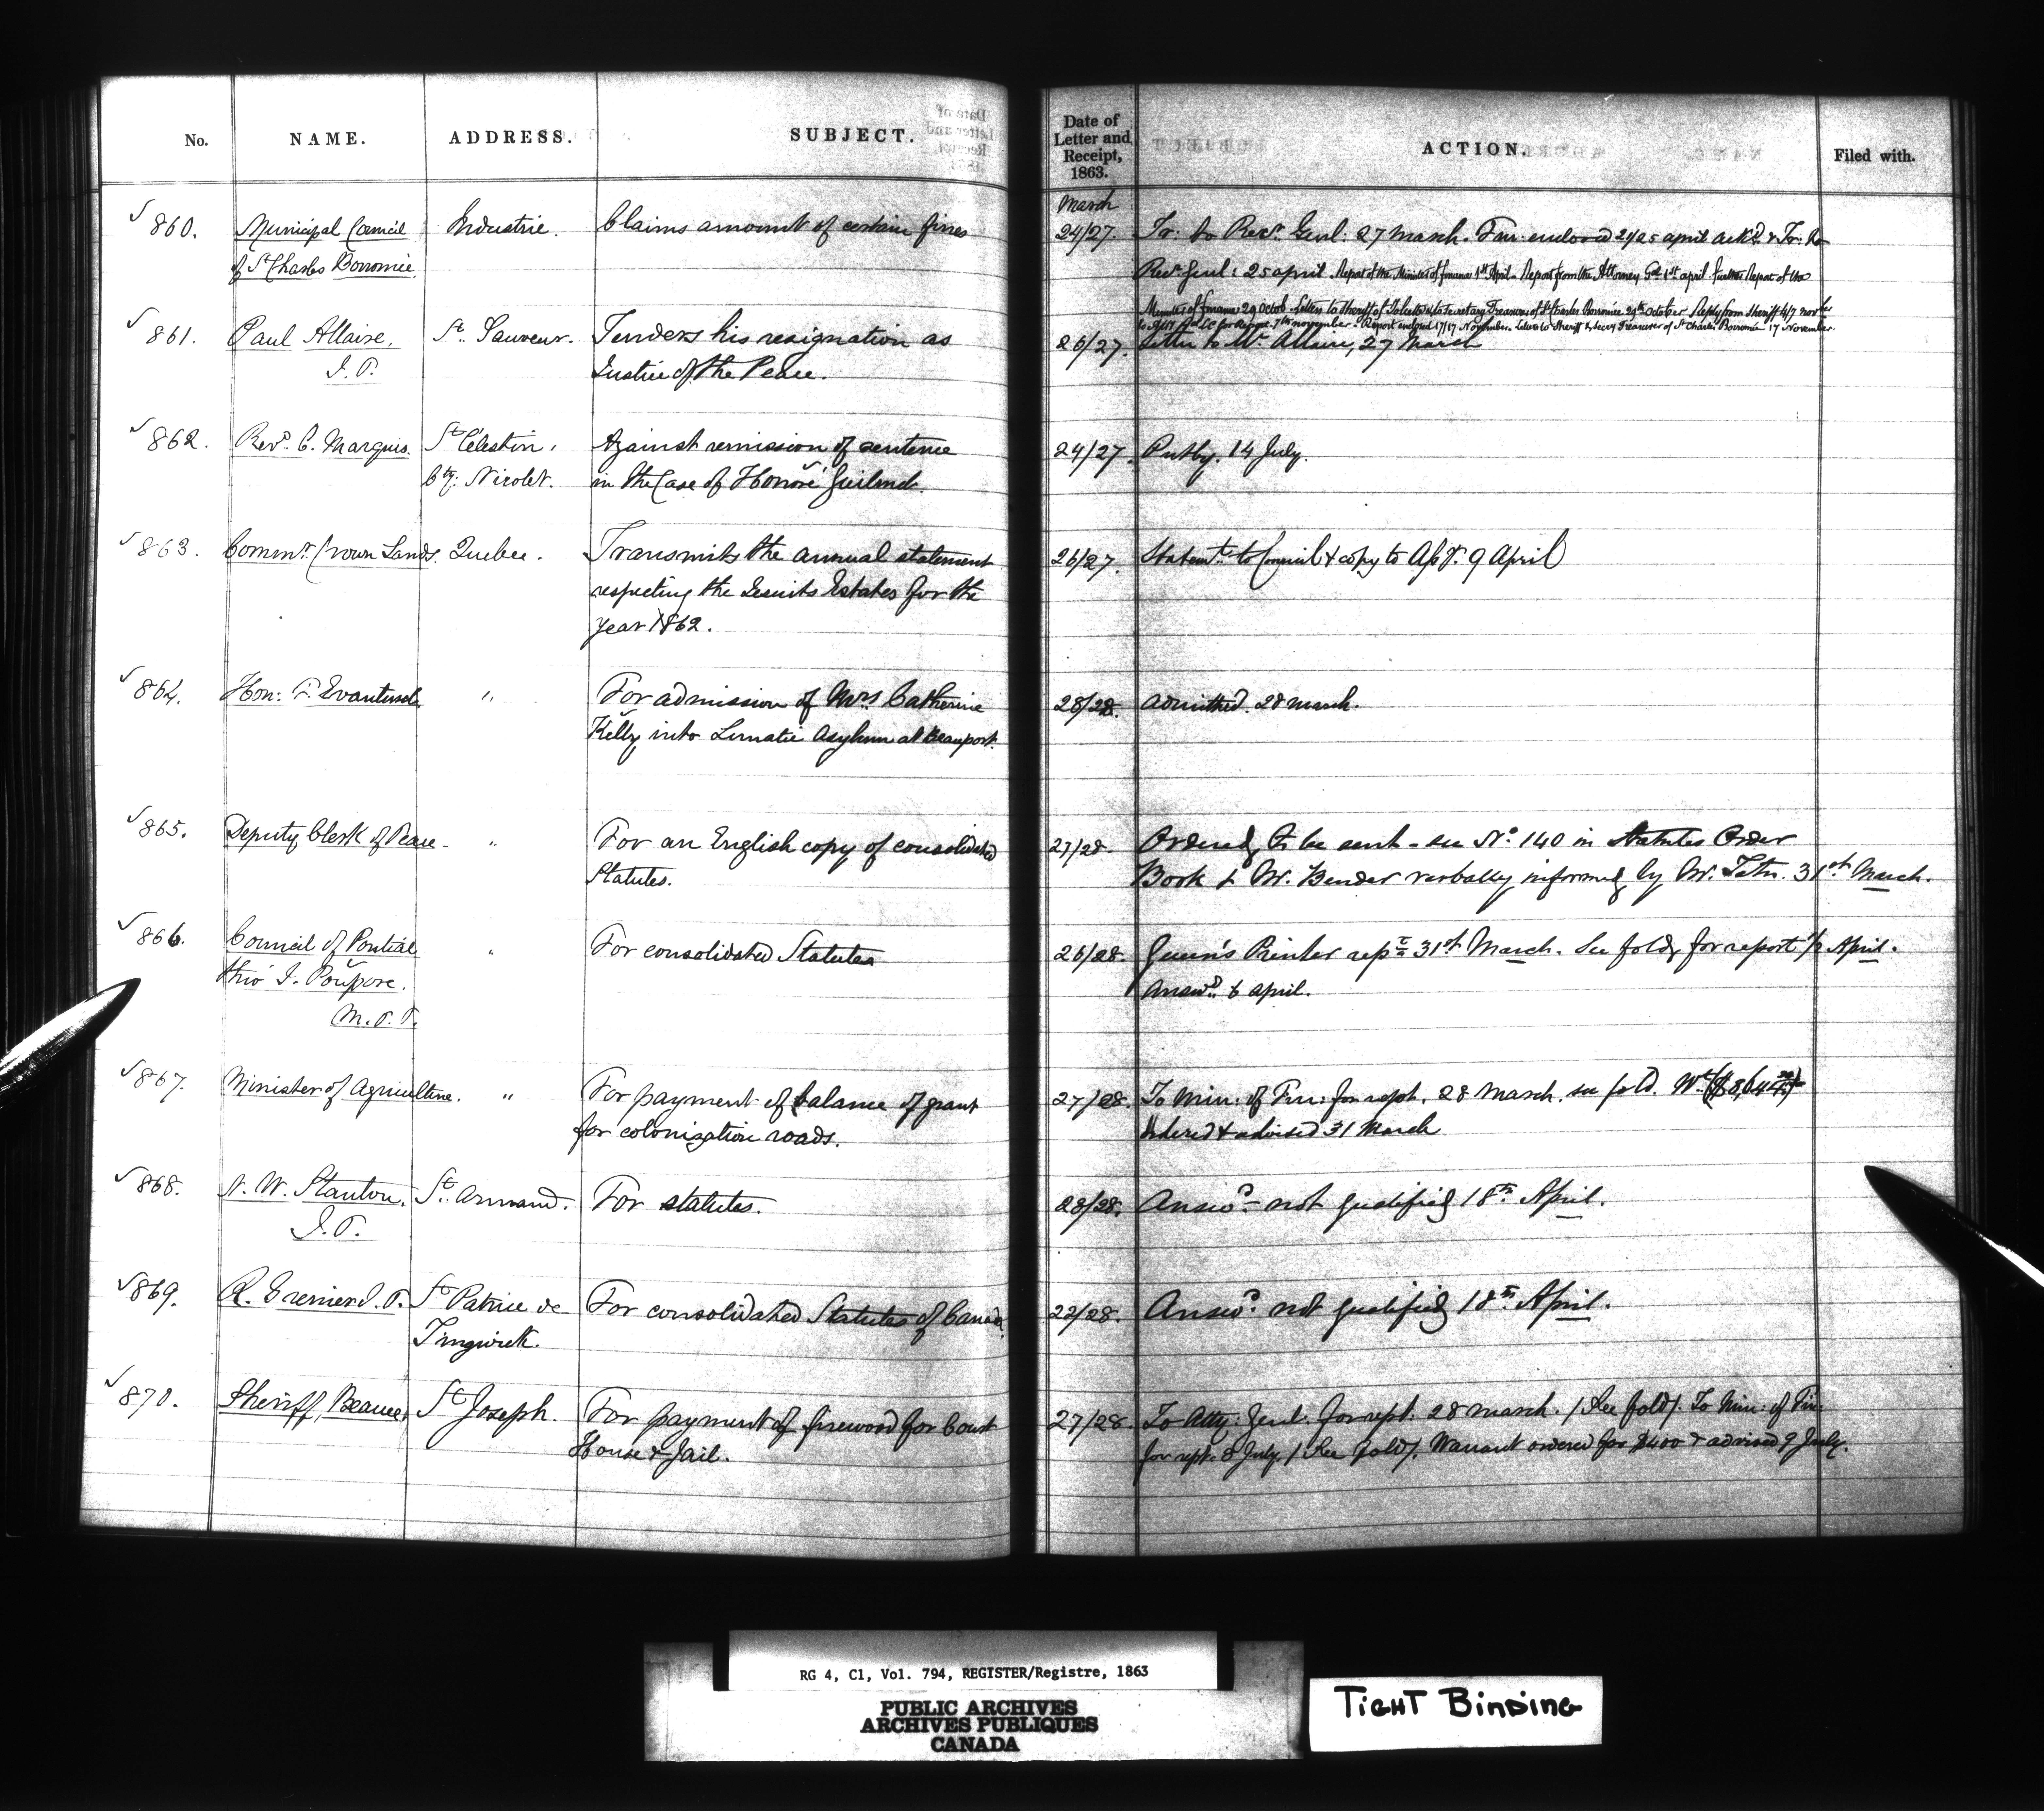 No. NAME. ADDRESS. SUBJECT. Date of Letter and Receipt, 1863. ACTION. Filed with.
March
860. Municipal Council Industrie. Claims amount of certain fines 24/27. Tr: to Recr. Genl. 27 March. Fur: enclosed 24/25 april ackd. & Tr: to
of St Charles Borromée Recr. Genl: 25 april. Report of the Minister of finance 1st April. Report from the Attorney Gal 1st april further Report of the
Minister of finance 29 Octob. Letter to Sheriff of Joliette & to Secretary Treasurer of St Charles Borromée 29th October. Reply from Sheriff 4/7 Novber
for Report 7th november. Report enclosed 17/17 November. Letter to Sheriff & Secry Treasurer of St Charles Borromée 17 November.
861. Paul Allaire, St. Sauveur. Tenders his resignation as 26/27. Letter to Mr. Allaire, 27 March
J.P. Justice of the Peace.
862. Revd. C. Marquis. St Célestin, Against remission of sentence 24/27. Putby. 14 July.
Cty. Nicolet. in the Case of Honoré
863. Commr. Crown Lands. Quebec. Transmits the annual statement 26/27. Statemt. to Council & copy to 9 April
respecting the Jesuits Estates for the
year 1862.
864. Hon: F. Evanturel " For admission of Mrs Catherine 28/28. Admitted. 28 March.
Kelly into Lunatic Asylum at Beauport.
865. Deputy Clerk of Peace. " For an English copy of consolidated 27/28. Ordered to be sent - see No. 140 in Statutes Order
Statutes. Book & Mr. Bender verbally informed by Mr. 31st March.
866. Council of Pontiac " For consolidated Statutes 26/28. Queen's Printer 31st March. See fold, for report 1/2 April.
thro' J. Poupore. Answd. 6 april.
M.P.P.
867. Minister of Agriculture. " For payment of balance of grant 27/28. To Min: of Fin: for rept. 28 March. see fold. Wt.
for colonization roads. ordered & advised 31 March
868. N. W. Stanton. St. Armand. For statutes. 28/28. Answd. not qualified 18th. April.
J.P.
869. R. Grenier J.P. St Patrice de For consolidated Statutes of Canada. 23/28. Answd. not qualified 18th. April.
Tingwick.
870. Sheriff, Beauce, St Joseph. For payment of firewood for Court 27/28. To Atty: Genl. for rept. 28 March. /See fold/. To Min: of Fin:
House & Jail. for rept. 8 July. /See fold/. Warrant ordered for $400 & advised 9 July.
RG 4, C1, Vol. 794, REGISTER/Registre, 1863
PUBLIC ARCHIVES
ARCHIVES PUBLIQUES
CANADA
TIGHT BINDING